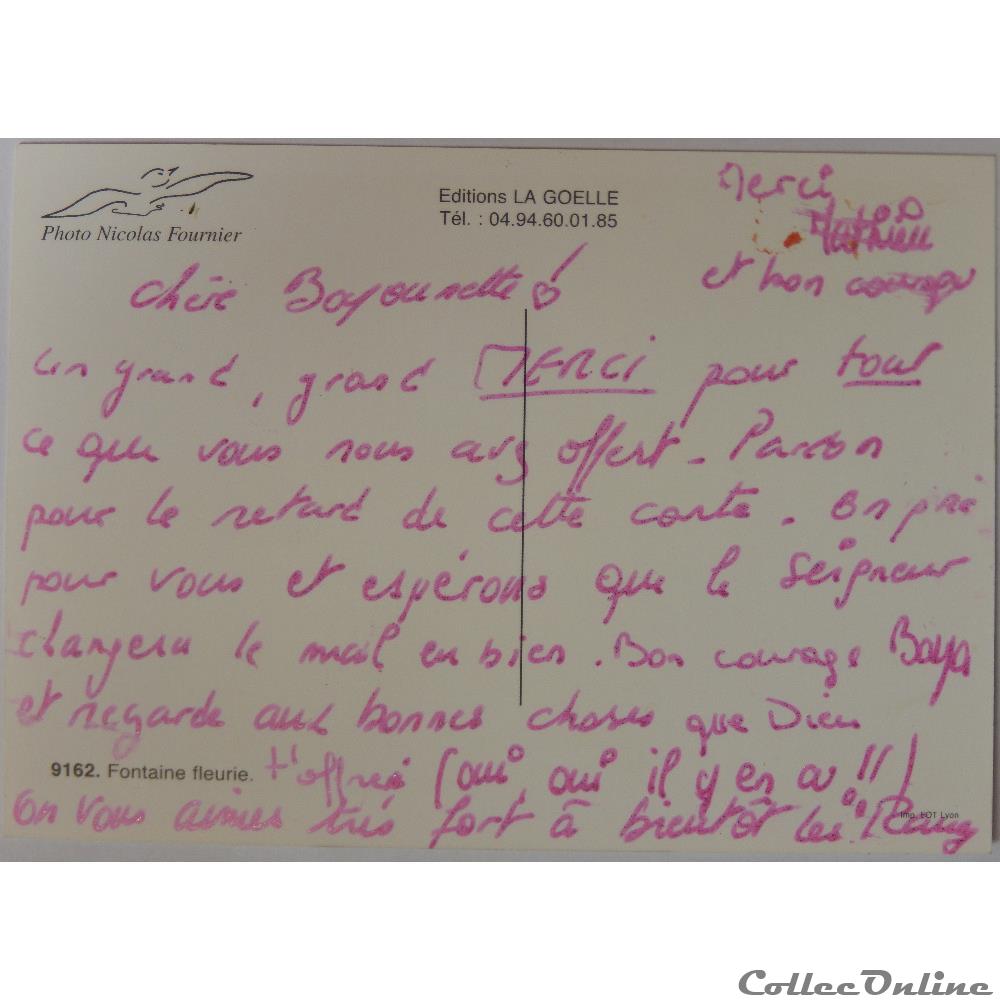 Photo Nicolas Fournier
Editions LA GOELLE
Tél. : 04.94.60.01.85
Merci
Mathieu
et bon courage
Chère Bayounette !
Un grand, grand MERCI pour tout
ce que vous nous avez offert. Pardon
pour le retard de cette carte. On prie
pour vous et espérons que le Seigneur
changera le mal en bien. Bon courage Baya
et regarde aux bonnes choses que Dieu
9162. Fontaine fleurie.
t'offre (oui, oui il y en a !!)
On vous aimes très fort à bientôt les
Imp. LOT Lyon
CollecOnline